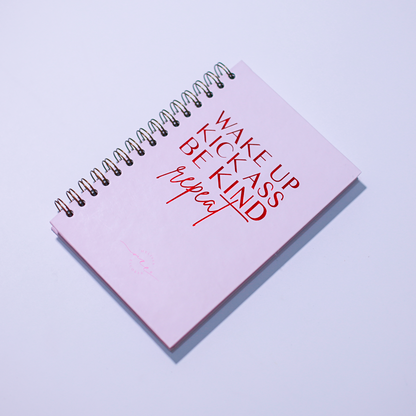 WAKE UP
KICK ASS
BE KIND
repeat